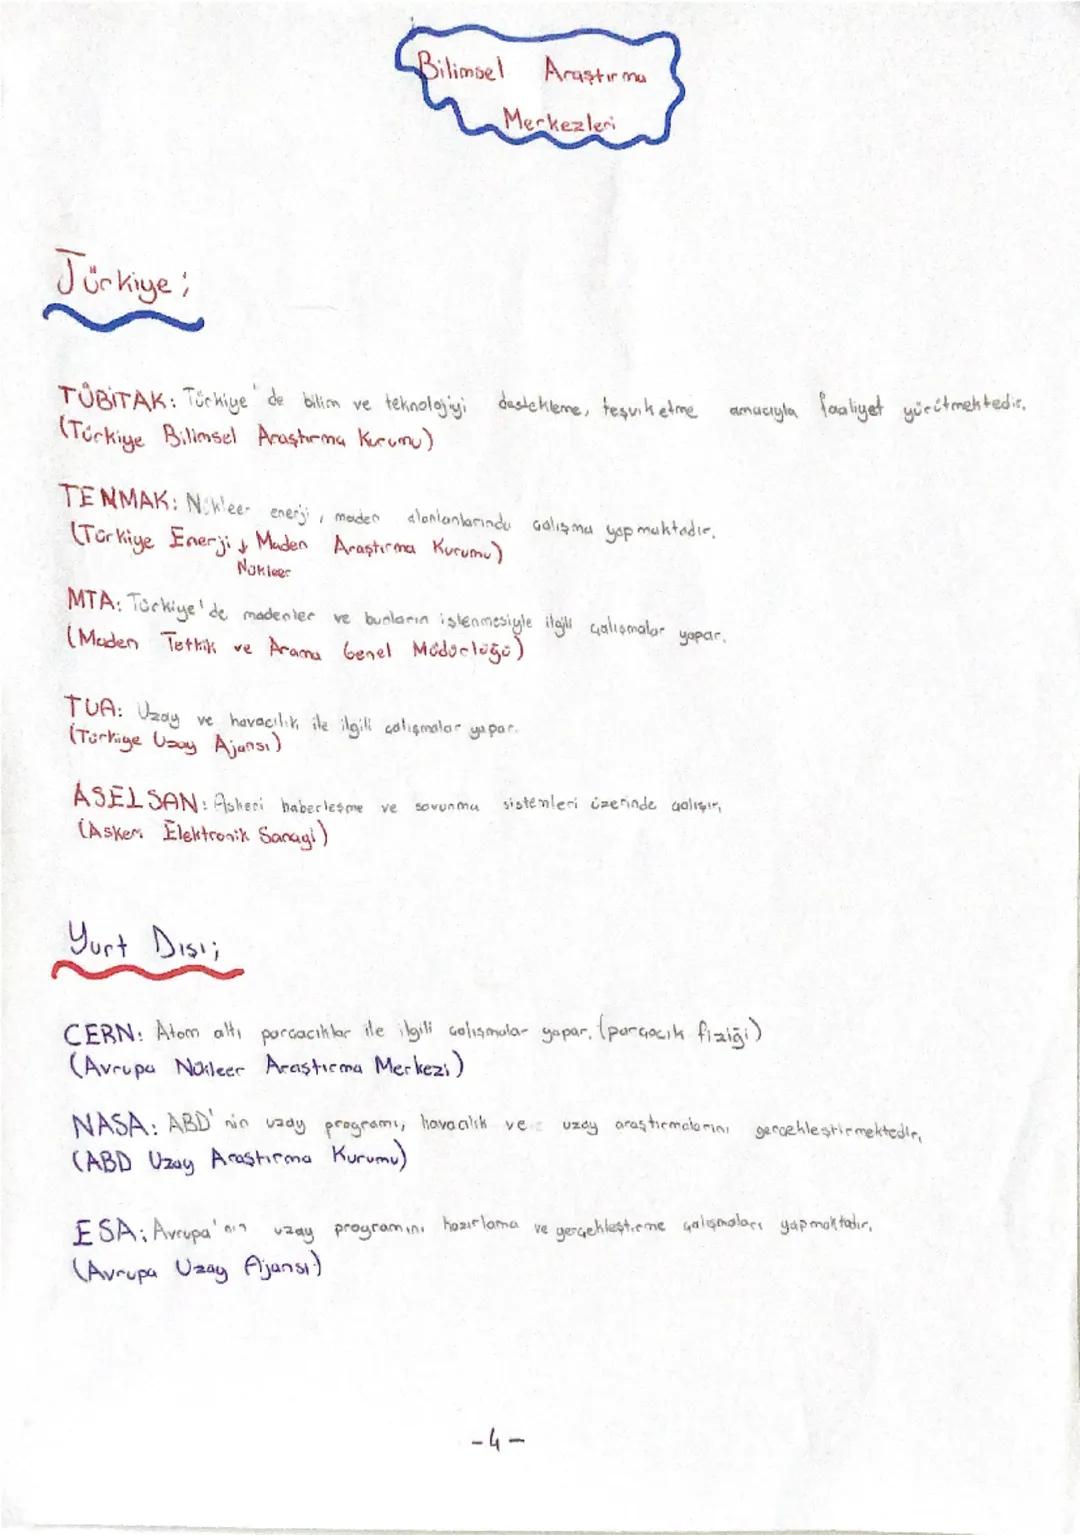 Bilimsel Araştırma
Merkezleri
Türkiye;
TÜBİTAK: Türkiye'de bilim ve teknolojiyi destekleme, teşvik etme amacıyla faaliyet yürütmektedir.
(Türkiye Bilimsel Araştırma Kurumu)
TENMAK: Nükleer enerji, maden alanlanlarında çalışma yapmaktadır.
(Türkiye Enerji, Maden Araştırma Kurumu)
Nükleer
MTA: Türkiye'de madenler ve bunların işlenmesiyle ilgili çalışmalar yapar.
(Maden Tetkik ve Arama Genel Müdürlüğü)
TUA: Uzay ve havacılık ile ilgili çalışmalar yapar.
(Türkiye Uzay Ajansı)
ASELSAN: Askeri haberleşme ve savunma sistemleri üzerinde çalışır.
(Askeri Elektronik Sanayi)
Yurt Dışı;
CERN: Atom altı parçacıklar ile ilgili çalışmalar yapar. (parçacık fiziği)
(Avrupa Nükleer Araştırma Merkezi)
NASA: ABD'nin uzay programı, havacılık ve uzay araştırmalarını gerçekleştirmektedir.
(ABD Uzay Araştırma Kurumu)
ESA: Avrupa'nın uzay programını hazırlama ve gerçekleştirme çalışmaları yapmaktadır.
(Avrupa Uzay Ajansı)
-4-